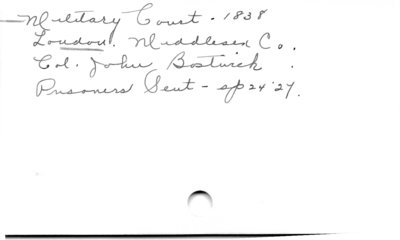 Military Court - 1838
London. Middlesex Co.
Col. John Bostwick.
Prisoners Sent - sp 24 '27.